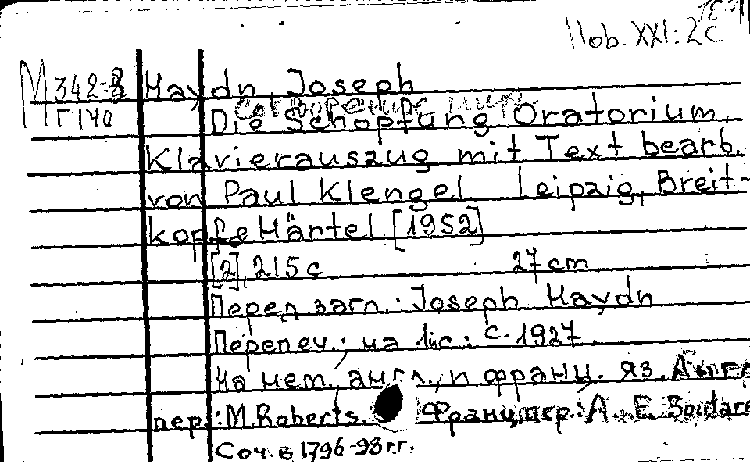 Hob. XXI: 2c
М 342-В Haydn, Joseph
Г140
Сотворение мира
Die Schöpfung Oratorium.
Klavierauszug mit Text bearb.
von Paul Klengel Leipzig, Breit-
kopf & Härtel [1952]
[2] 215 с 27 cm
Перед загл.: Joseph Haydn
Перепеч.; на 1й с.: с. 1927.
На нем. англ., и франц. яз. Англ
пер.: M. Roberts. Франц. пер.: A. E.
Соч. в 1796-98 гг.